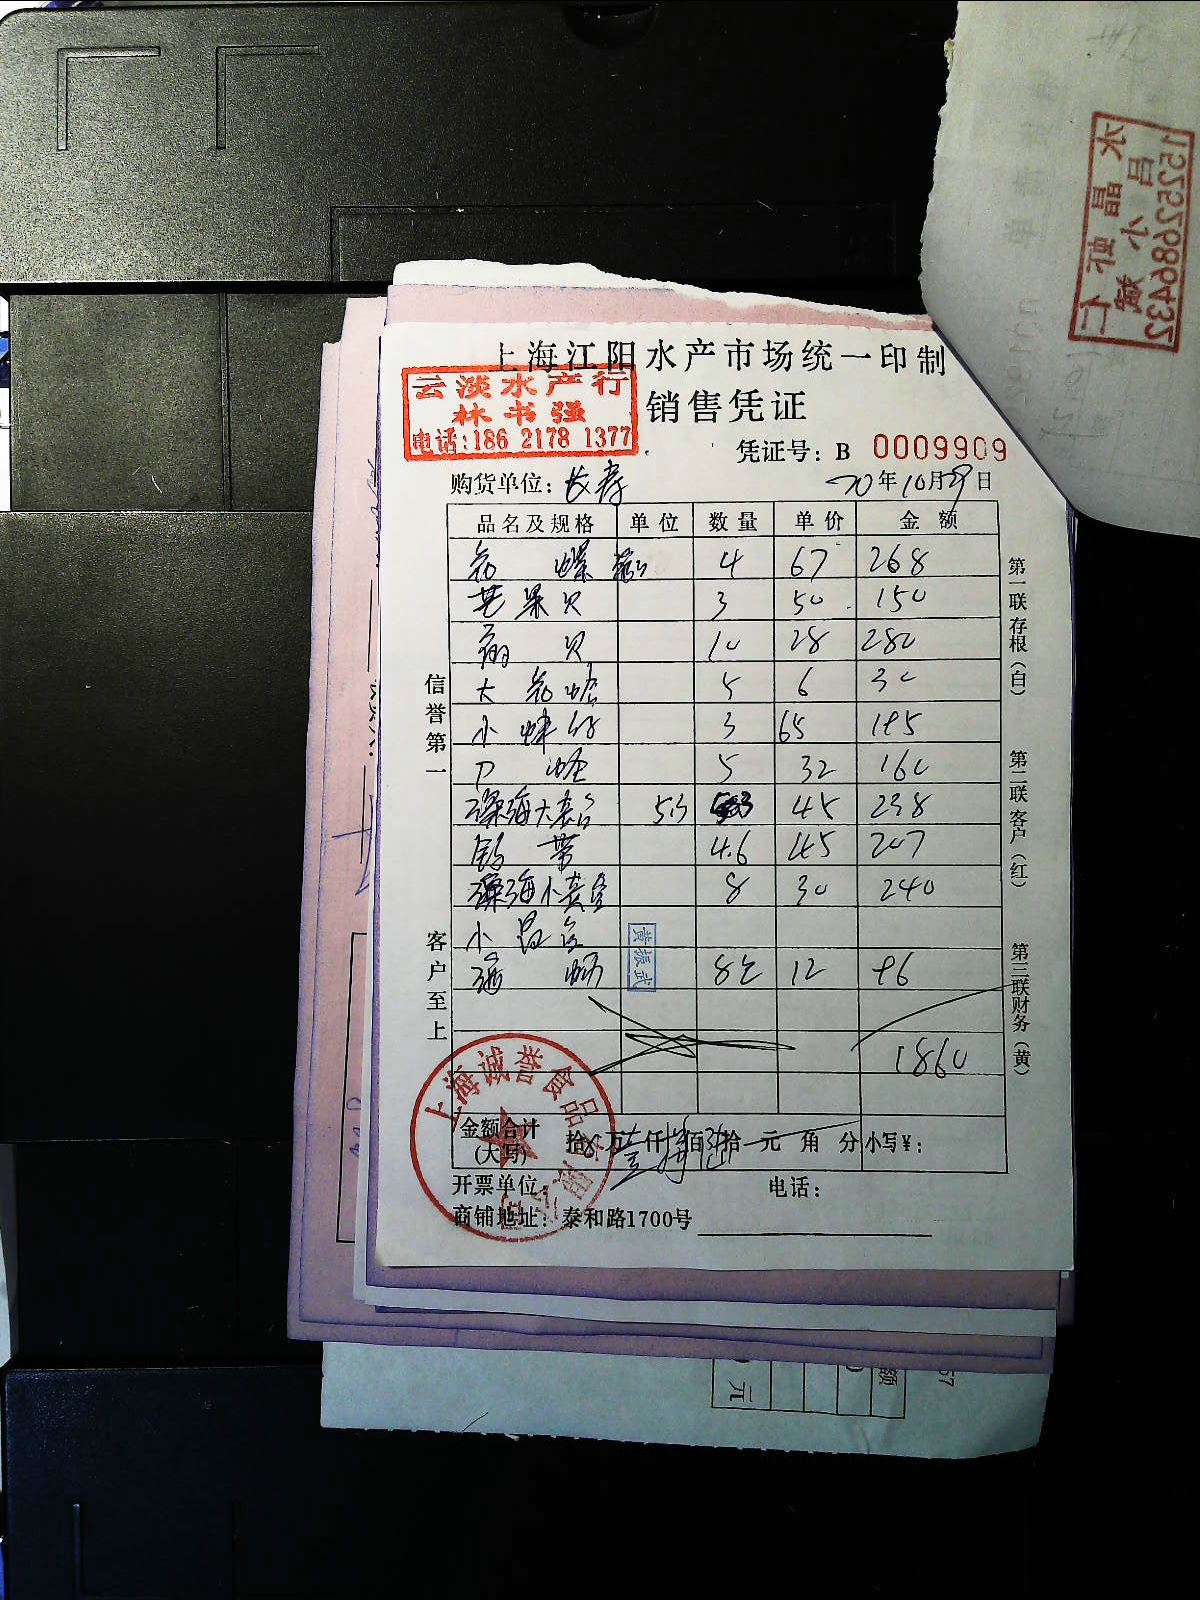 上海江阳水产市场统一印制
云淡水产行
林书强
电话:186 2178 1377
销售凭证
凭证号: B 0009909
购货单位: 长寿 20年10月29日
品名及规格 单位 数量 单价 金额
花螺 4 67 268
芒果贝 3 50 150
贝 10 28 280
大花蛤 5 6 30
小 3 65 195
刀蛏 5 32 160
深海大 5.3 45 238
带 4.6 45 207
深海小 8 30 240
小
8 12 96
黄振武
1860
金额合计
(大写) 拾 万 仟 佰 拾 元 角 分 小写¥:
开票单位: 电话:
商铺地址: 泰和路1700号
上海诚誉食品有限公司
信誉第一
客户至上
第一联存根(白)
第二联客户(红)
第三联财务(黄)
水晶虾仁
吕小斌
15252686432
额
元